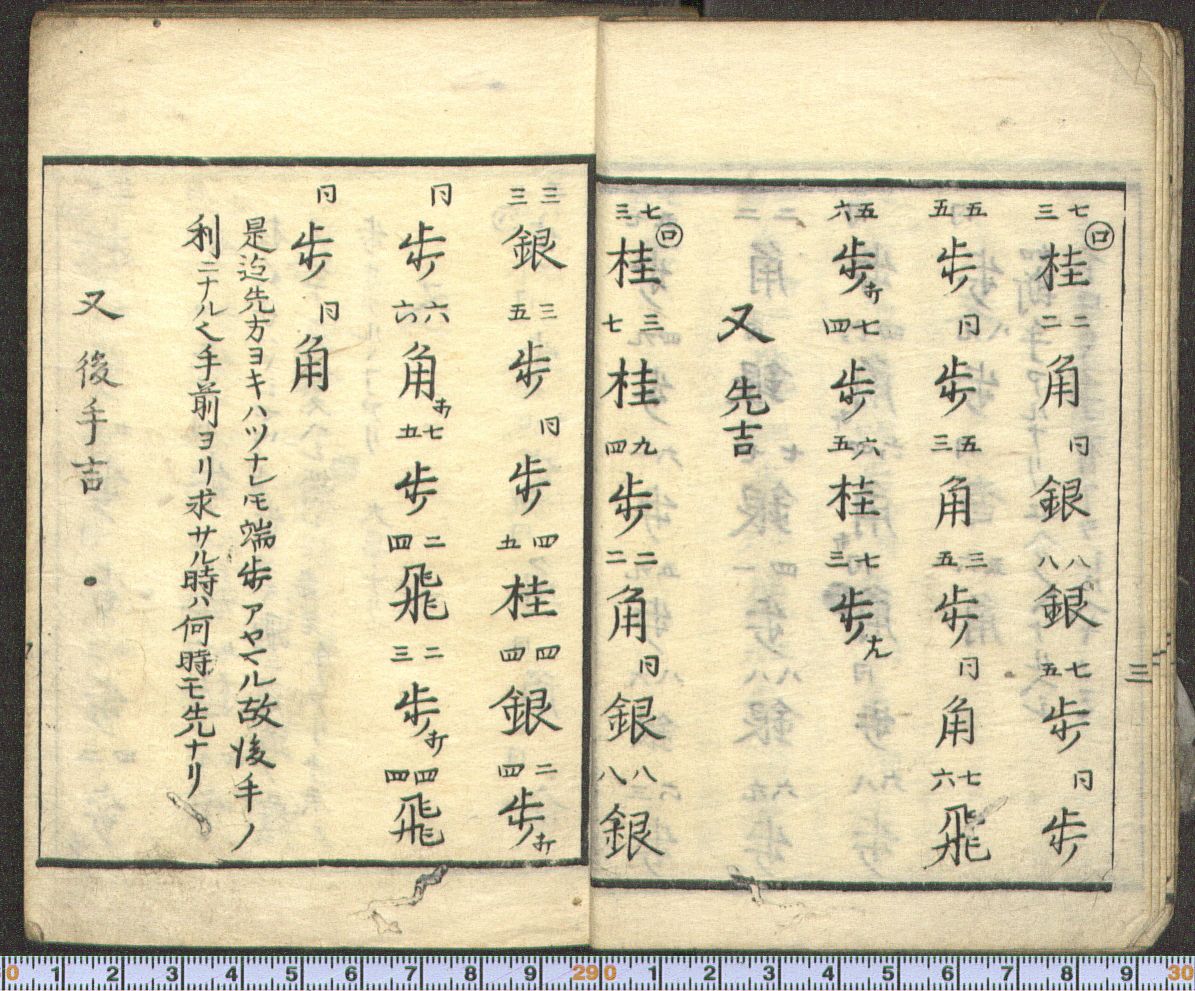 ㋺七三桂 二二角 同銀 八八銀 七五歩 同歩
五五歩 同歩 五三角 三五歩 同角 七六飛
五六歩打 七四歩 六五桂 七三歩ナル
又 先吉
㋺七三桂 三七桂 九四歩 二二角 同銀 八八銀
三
三三銀 三五歩 同歩 四五桂 四四銀 二四歩打
同歩 六六角打 七五歩 二四飛 二三歩打 四四飛
同歩 同角
是迄先方ヨキハツナレ𪜈端歩アヤマル故後手ノ
利ニナル也手前ヨリ求サル時ハ何時モ先ナリ
又 後手吉